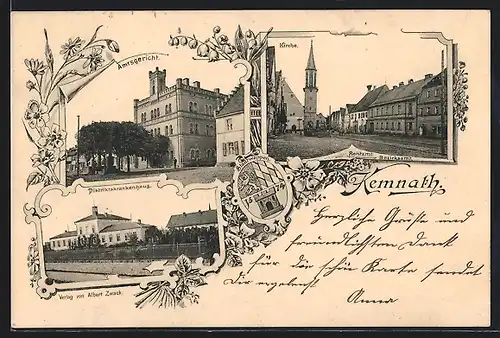 Amtsgericht.
Kirche.
Rentamt.
Bezirksamt.
Districtskrankenhaus.
Kemnath.
Herzliche Grüße und
freundlichsten Dank
für die schöne Karte sendet
Dir ergebenst
Anna
Verlag von Albert Zwack